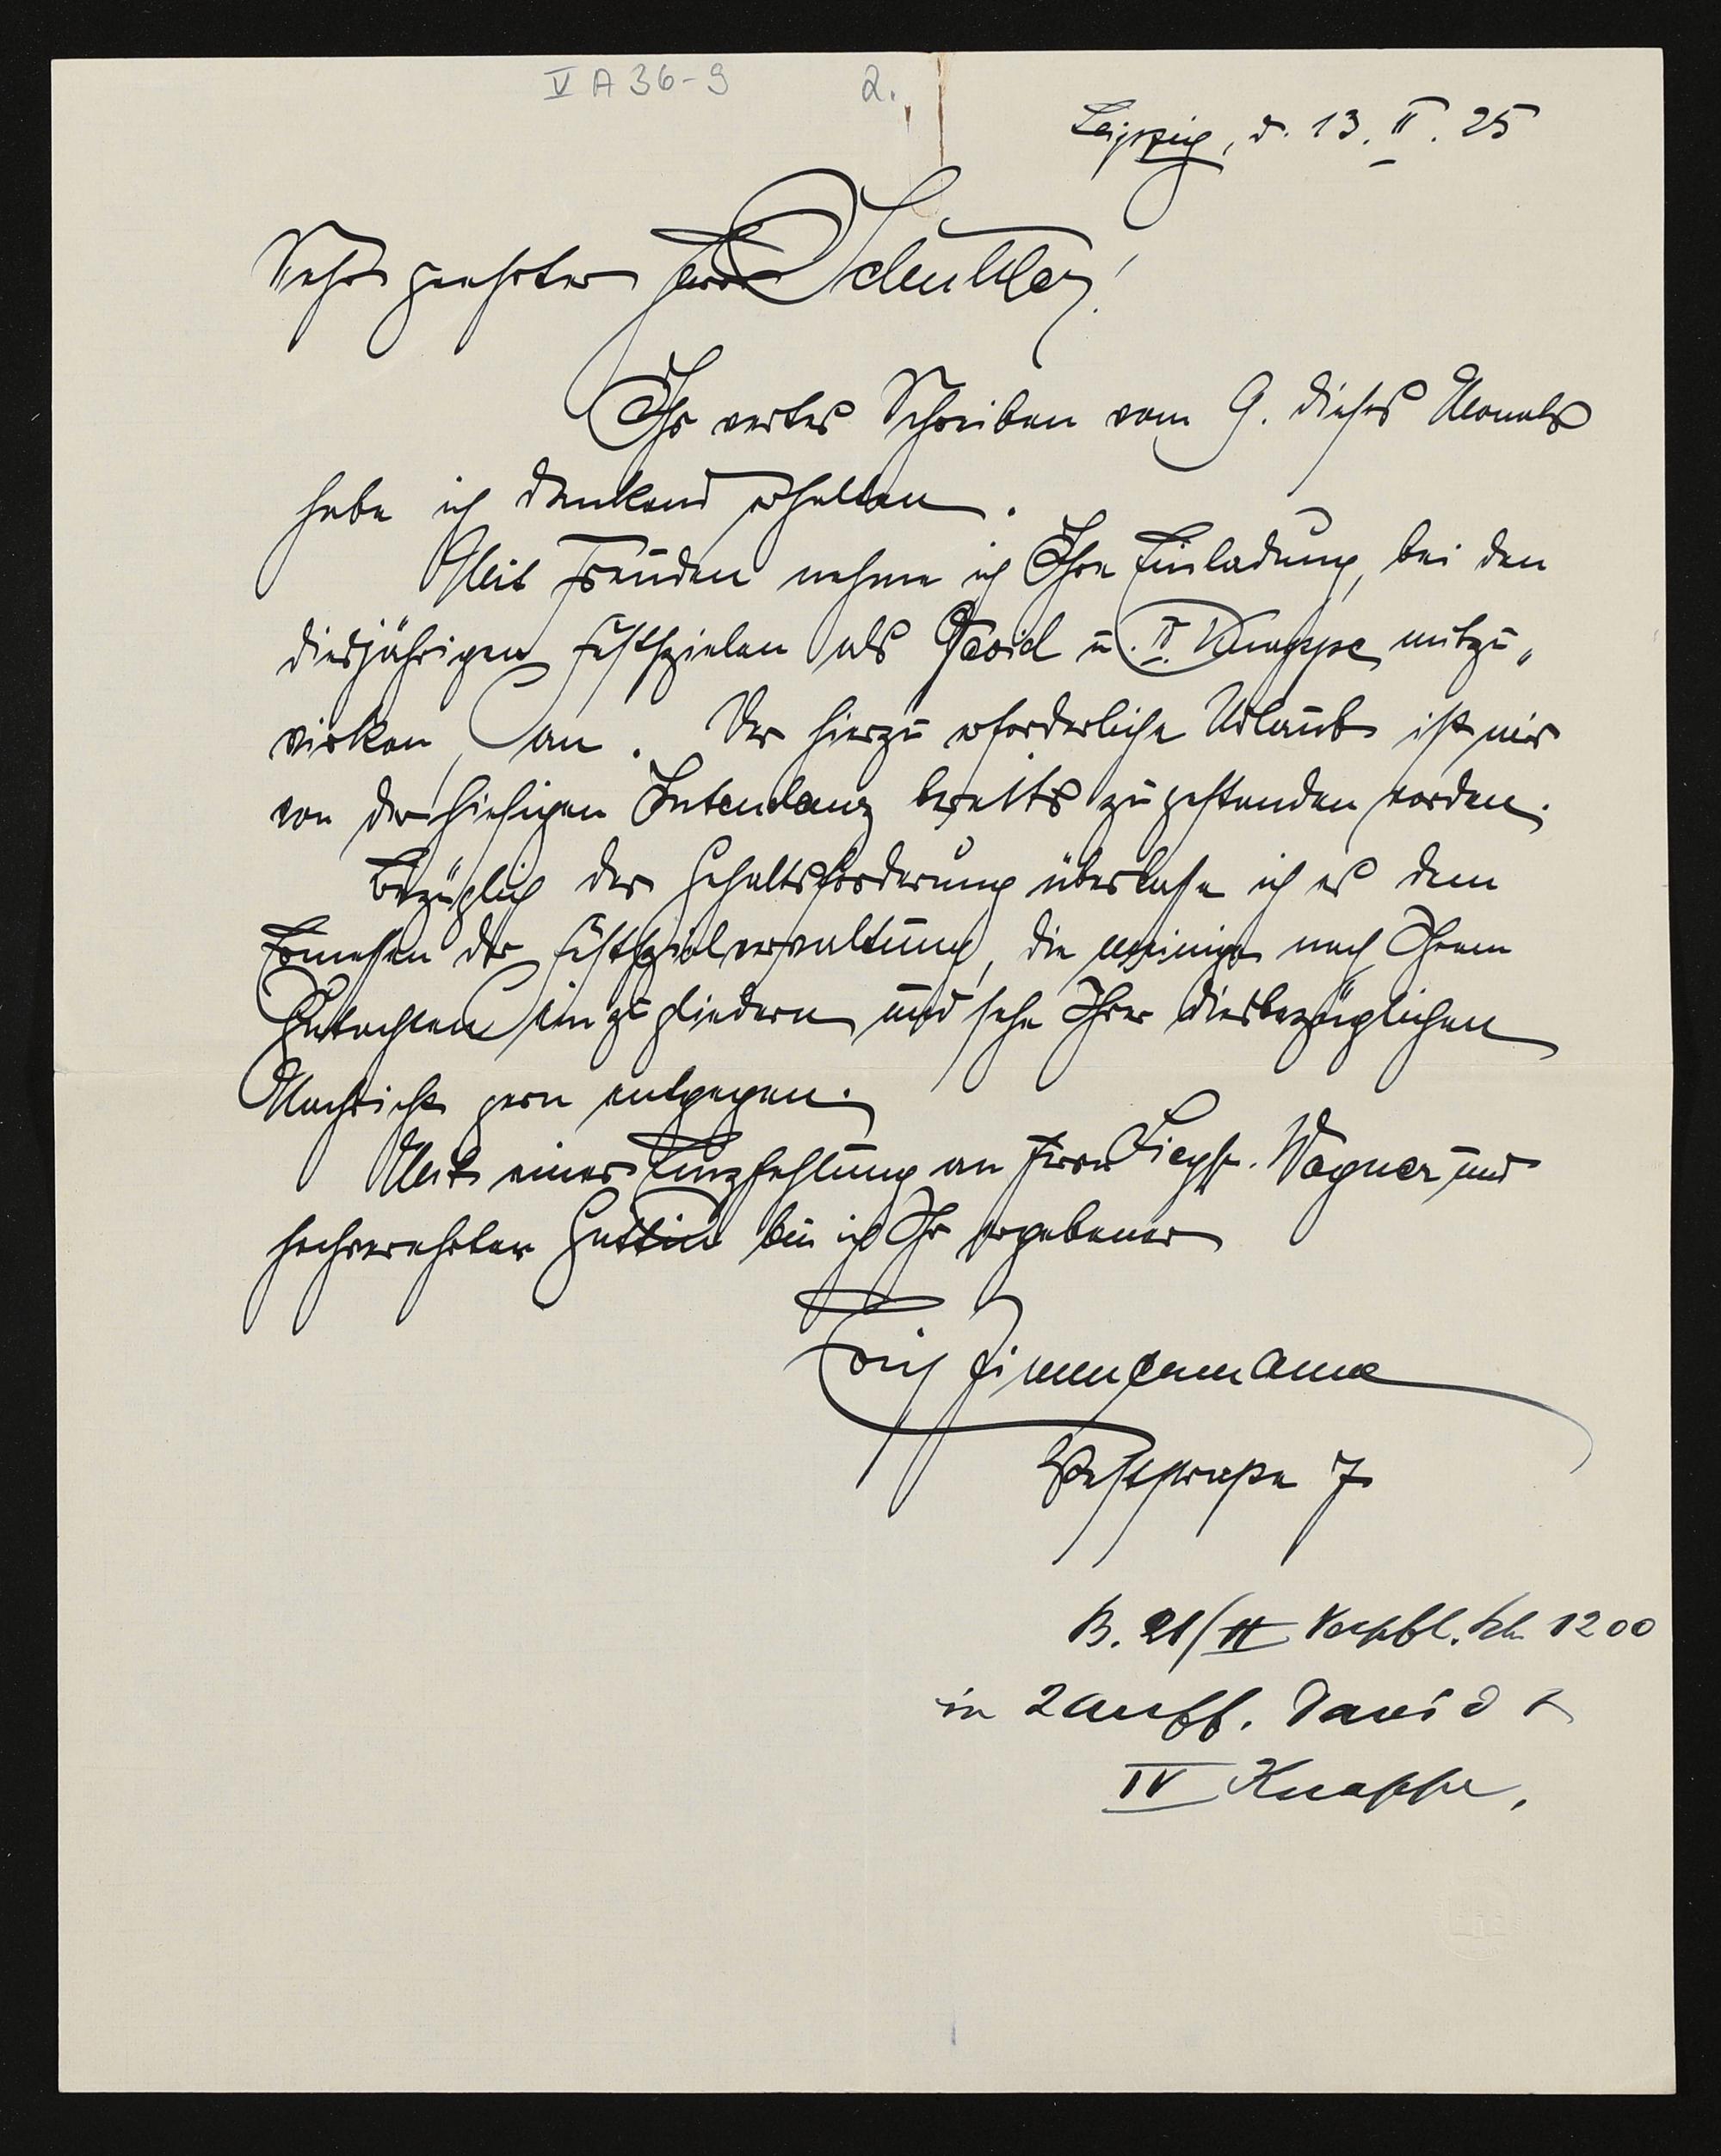 V A 36-9 2.
Leipzig, d. 13. II. 25
Sehr geehrter Herr Schuller!
Ihr wertes Schreiben vom 9. dieses Monats
habe ich dankend erhalten.
Mit Freuden nehme ich Ihre Einladung, bei den
diesjährigen Festspielen als David u. IV. Knappe mitzu„
wirken, an. Der hierzu erforderliche Urlaub ist mir
von der hiesigen Intendanz bereits zugestanden worden.
Bezüglich der Gehaltsforderung überlasse ich es dem
Ermessen der Festspielverwaltung, die meinige nach Ihrem
Gutachten einzugliedern und sehe Ihrer diesbezüglichen
Nachricht gern entgegen.
Mit einer Empfehlung an Herrn Siegfr. Wagner und
hochverehrter Gattin bin ich Ihr ergebener
Erich Zimmermann
Weststraße 7
B. 21/II 1200
in 2 Auff. David &
IV Knappe,